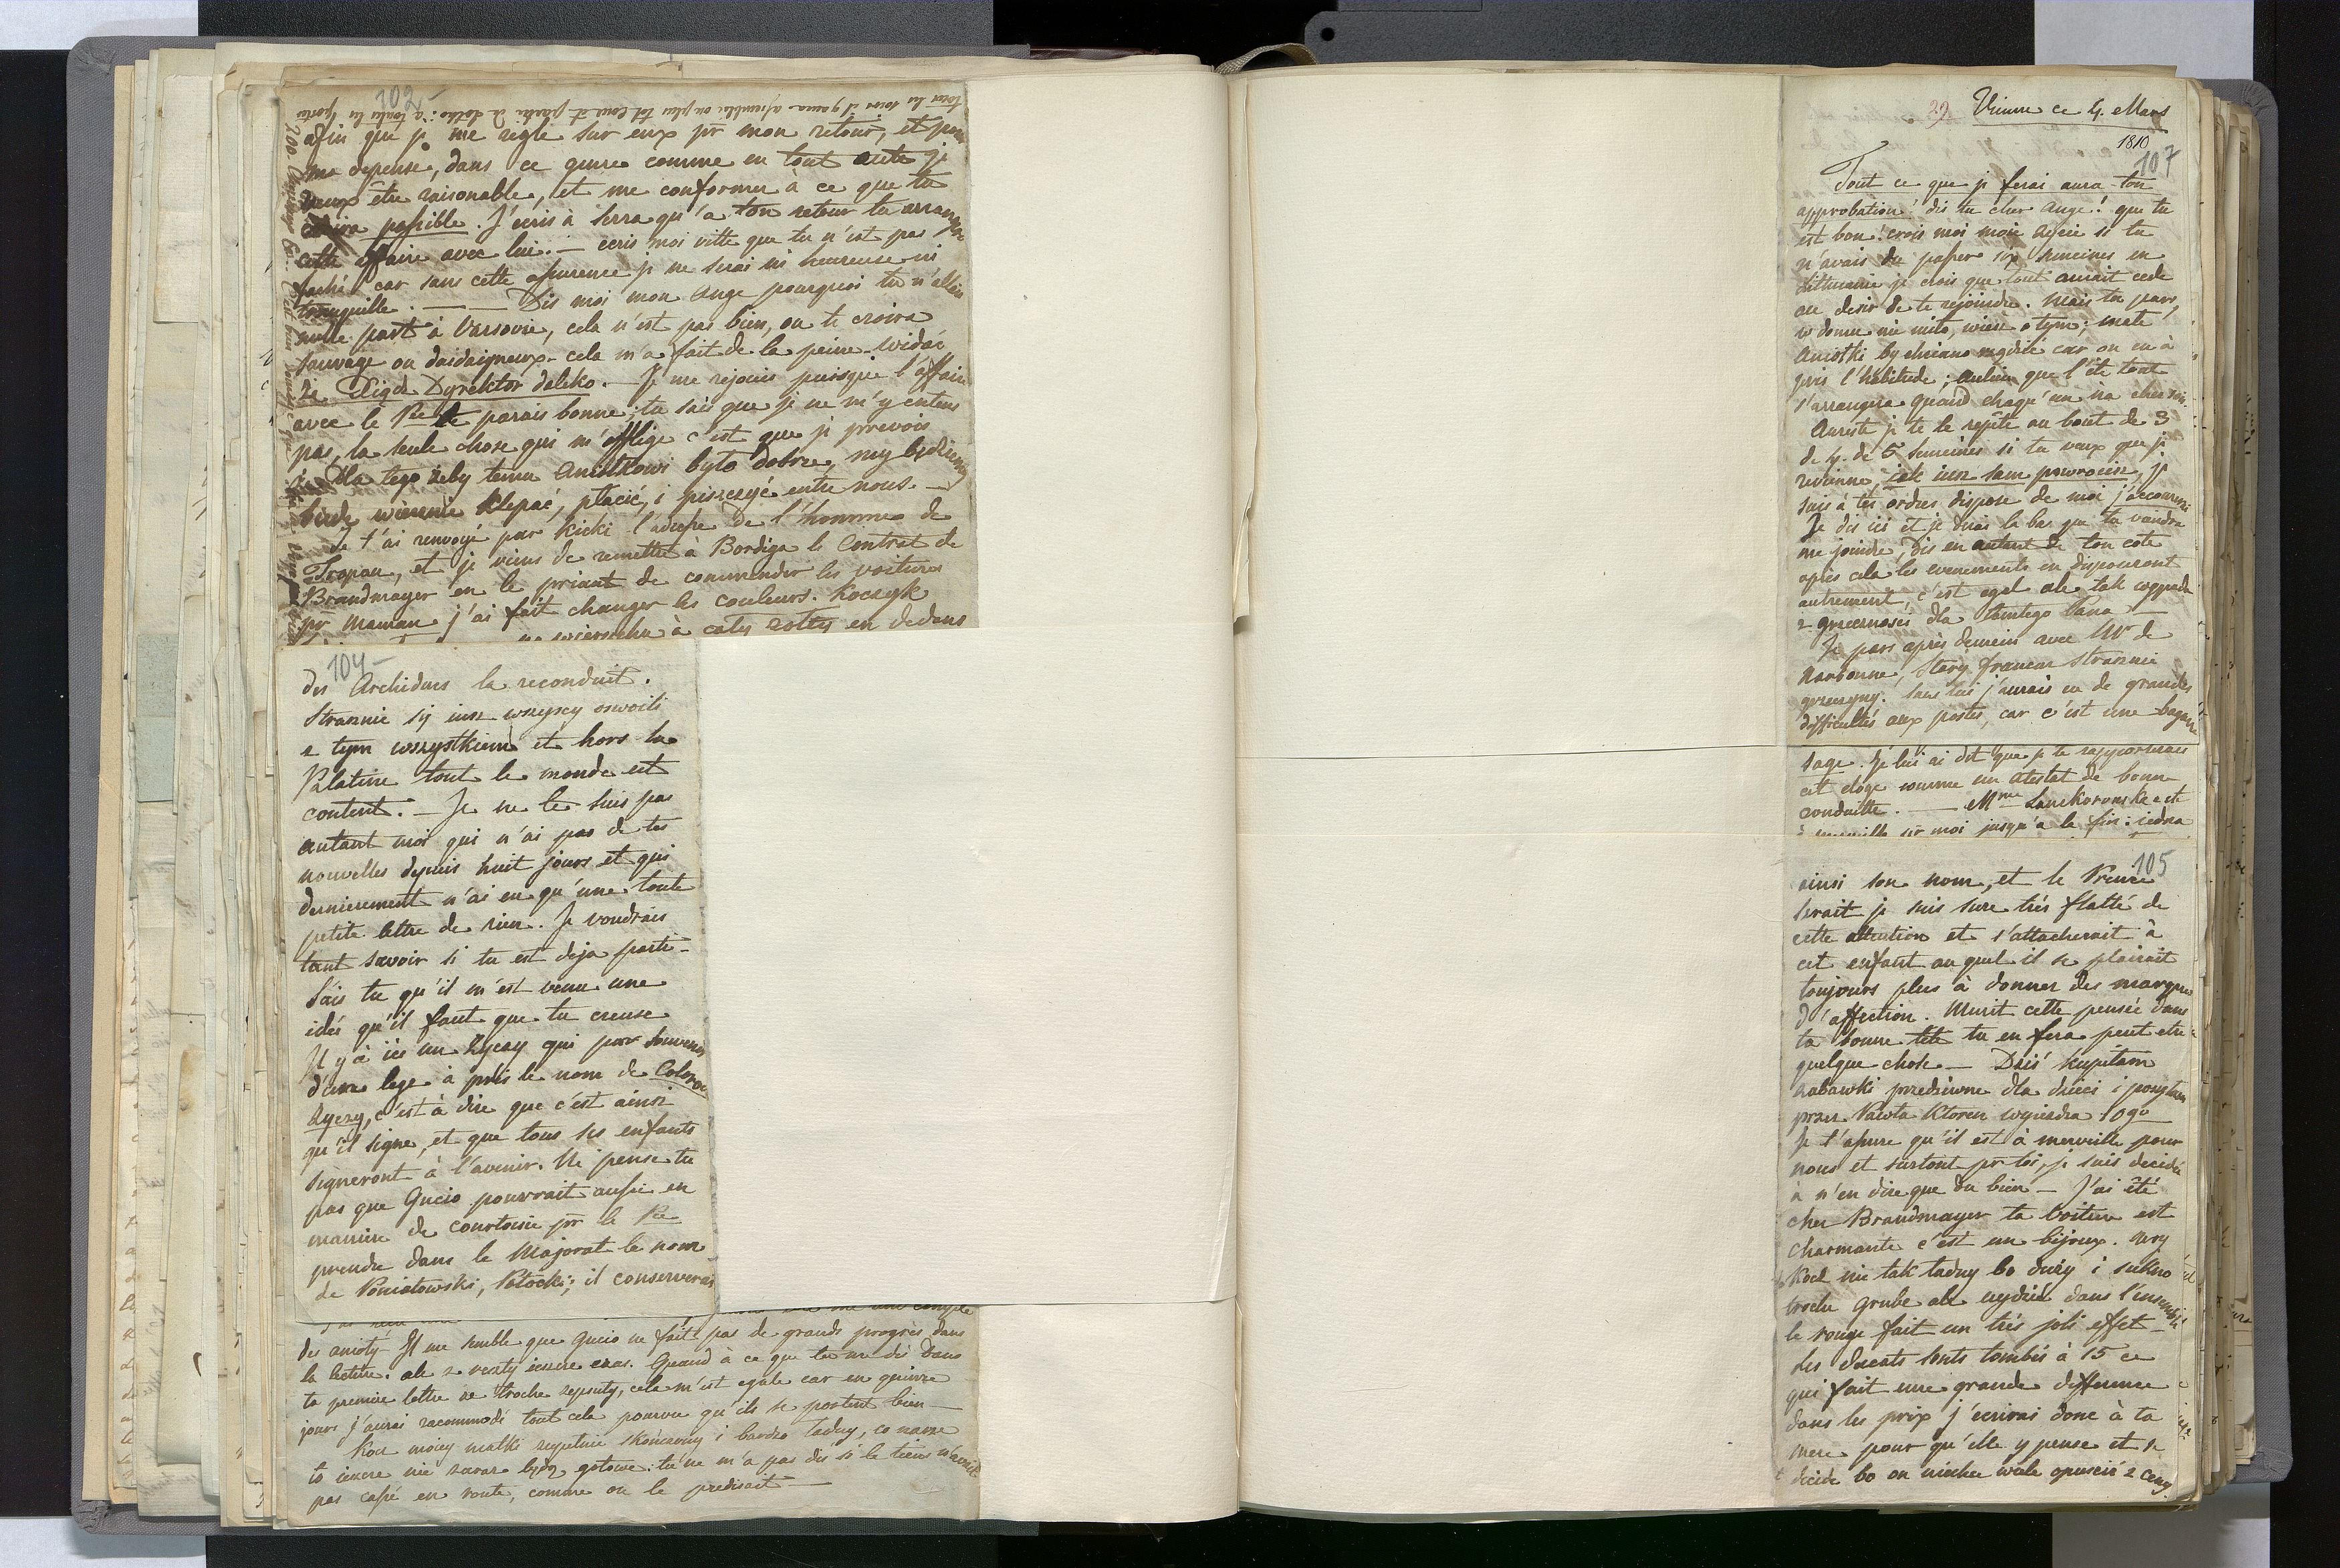 102
afin que je me regle sur eux pr mon retour, et pour
ma depense, dans ce genre comme en tout autre je
veux être raisonable, et me conformer à ce que tu
possible. J'ecris à Serra qu'a ton retour tu arrangera
cette affaire avec lui. — ecris moi vitte que tu n'est pas
faché car sans cette assurence je ne serai ni heureuse ni
tranquille. — Dis moi mon Ange pourquoi tu n'allai
nulle part à Varsovie, cela n'est pas bien, on te croira
sauvage ou daidaigneux. cela m'a fait de la peine. widać
że Xiądz Dyrektor daleko. — Je me rejouis puisque l'affaire
avec le Pce te parais bonne; tu sais que je ne m'y entens
pas, la seule chose qui m'afflige c'est que je prevois
że dla tego żeby temu Aniołkowi było dobrze, my będziemy
biedę wiecznie klepać, płacić, i piszczyć entre nous. —
Je t'ai renvoyé par Kicki l'adresse de l'homme de
Tropau, et je viens de remettre à Bordiga le Contrat de
Brandmayer en le priant de commender les voitures
pr maman j'ai fait changer les couleurs. Koczyk
na wierzchu à cały żółty en dedans
104
des Archiducs la reconduit.
Strasznie się iusz wszyscy oswoili
z tym wszystkiem et hors la
Palatine tout le monde est
content. — Je ne le suis pas
autant moi qui n'ai pas de tes
nouvelles depuis huit jours et qui
dernierement n'ai eu qu'une toute
petite lettre de rien. Je voudrais
tant savoir si tu est deja parti —
Sais tu qu'il m'est venu une
idée qu'il faut que tu creuse
Il y à ici un Zyczy qui pour souvenir
d'une lege à pris le nom de
c'est à dire que c'est ainsi
qu'il signe, et que tous ses enfants
signeront à l'avenir. Ne pense tu
pas que Gucio pourrait aussi en
maniere de courtoisie pr le Pce
prendre dans le Majorat le nom
de Poniatowski, Potocki; il conserverais
des anioły Il me semble que Gucio ne fait pas de grands progrès dans
la lecture. ale z reszty ieszcze czas. Quand à ce que tu me dis dans
ta premiere lettre że troche zepsuty, cela m'est egale car en quinze
jours j'aurai racommodé tout cela pourvu qu'ils se portent bien —
Kocz moiey matki zupełnie skończony i bardzo ładny, co nasze
to ieszcze nie zaraz będą gotowe. tu ne m'a pas dis si le tien n'avait
pas cassé en route, comme on le predisait —
39 Vienne ce 4. Mars
1810
107
Tout ce que je ferai aura ton
approbation! dis tu cher ange! que tu
est bon! crois moi mon Ajciu si tu
n'avais du passer six semeines en
Lithuanie je crois que tout aurait cedé
au desir de te rejoindre. Mais tu pars,
w domu nie miło, wiesz o tym; małe
Aniołki by chciano car on en à
pris l'habitude; aulieu que l'été tout
s'arrangera quand chaqu'un ira chez soi.
Aureste je te le repête au bout de 3
de 4. de 5 semeines si tu veux que je
revienne, iak iusz sam powrocisz, je
suis à tes ordres dispose de moi j'accourrai
Je dis ici et je dirai la bas que tu viendra
me joindre, dis en autant de ton coté
après cela les evenements en disposeront
autrement, c'est egal ale tak wypada
z grzecznosci dla tamtego Pana —
Je pars après demain avec Mr de
Narbonne, Stary francuz strasznie
grzeczny. Sans lui j'aurais eu de grandes
difficultés aux postes, car c'est une
sage. Je lui ai dit que je te rapporterais
cet eloge comme un atestat de bonne
conduitte. — Mme Lanckoronska a été
à merveille pr moi jusqu'a la fin: iedna
105
ainsi son nom, et le Prince
serait je suis sure très flatté de
cette attention et s'attacherait à
cet enfant auquel il se plairait
toujours plus à donner des marques
d'affection. Murit cette pensée dans
ta bonne tête tu en fera peut etre
quelque chose — Dziś kupiłam
zabawki przedziwne dla dzieci i posyłam
przez Pawła ktoren wyiezdza 10go
Je t'assure qu'il est à merveille pour
nous et surtout pr toi, je suis decidée
à n'en dire que du bien — J'ai été
chez Brandmayer ta voiture est
charmante c'est un bijoux.
Kocz nie tak ładny bo duży i sukno
troche grube ale wydzie dans l'ensemble
le rouge fait un très joli effet —
Les ducats sonts tombés à 15 ce
qui fait une grande difference
dans les prix j'ecrirai donc à ta
mere pour qu'elle y pense et se
decide bo on niechce wiele opuscić z ceny.